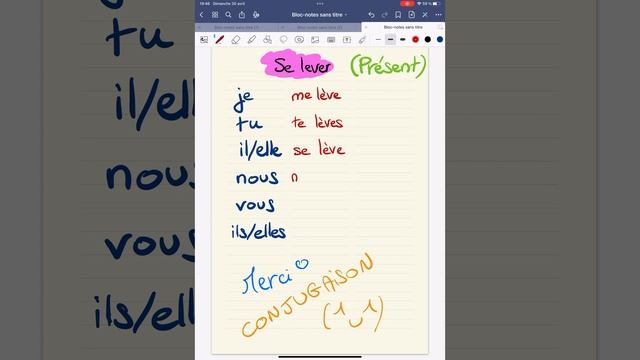 18:46 Dimanche 30 avril
Bloc-notes sans titre
Bloc-notes sans titre
Se lever (Présent)
je me lève
tu te lèves
il/elle se lève
nous n
vous
ils/elles
Merci
CONJUGAISON
(1 1)
tu
il/ell
nous
vous
ils/ell